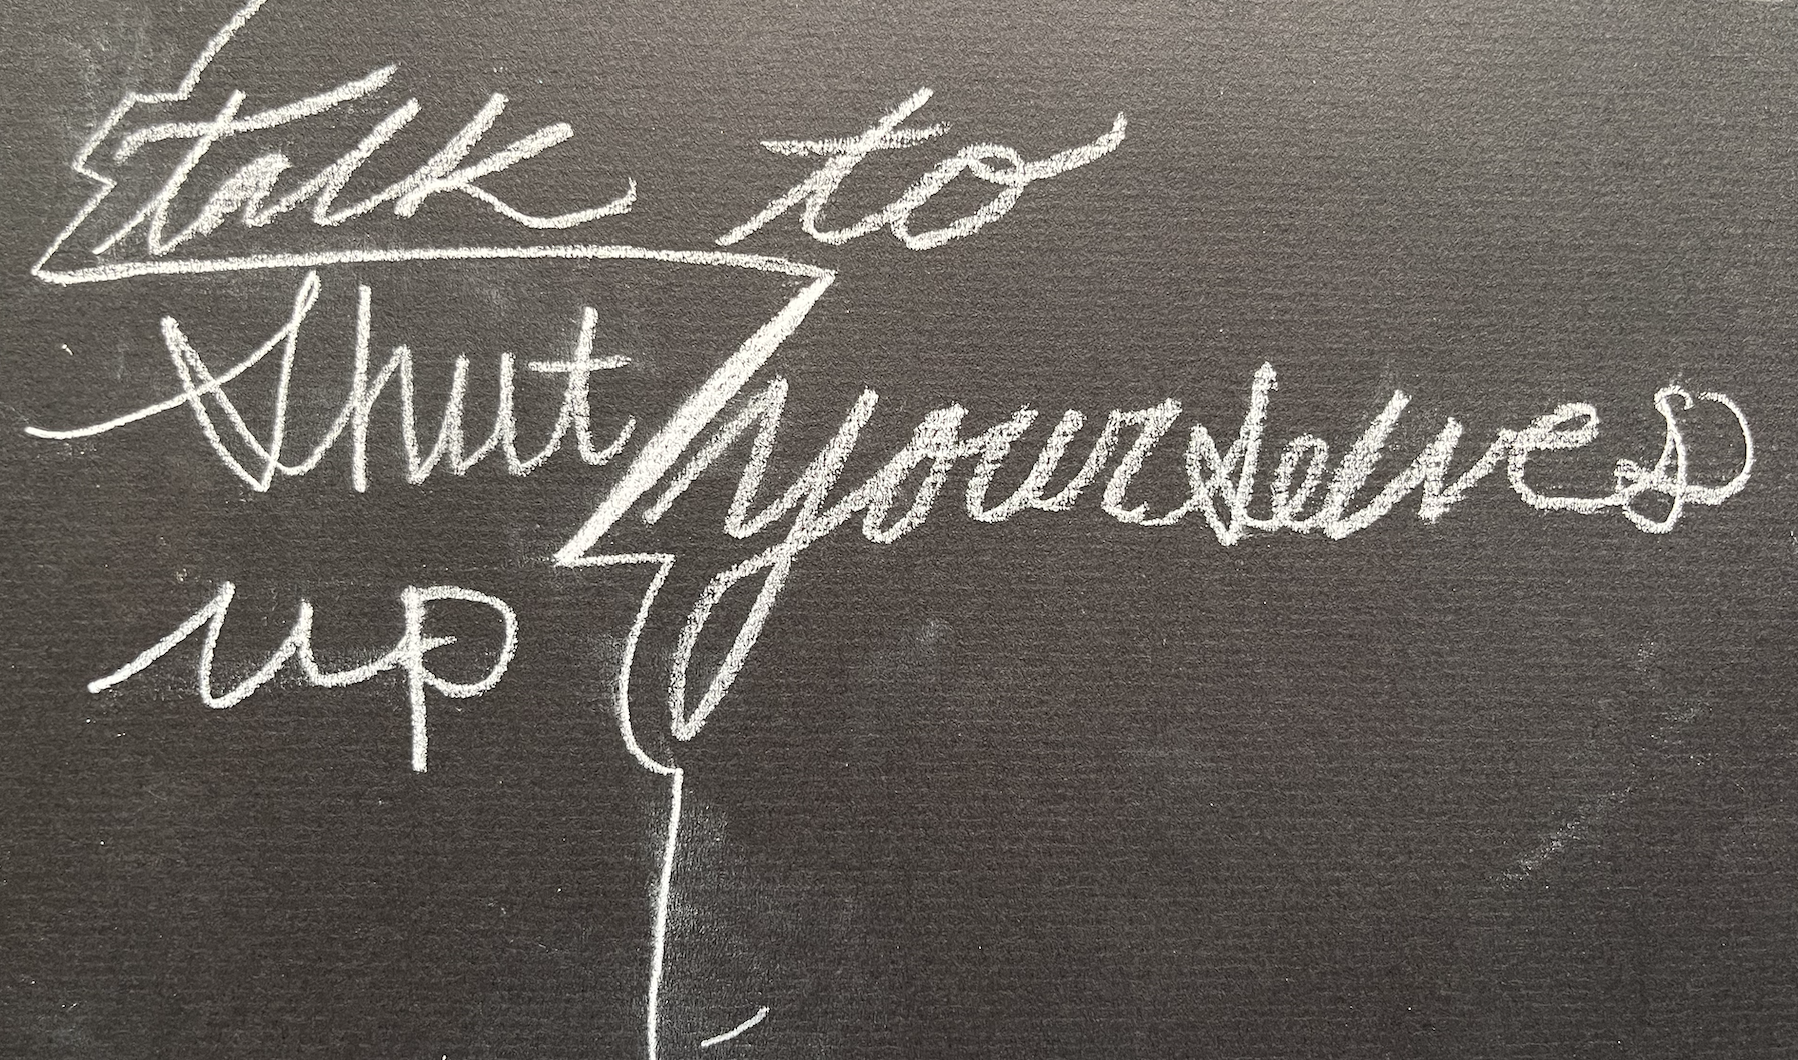 talk to
shut yourselves
up